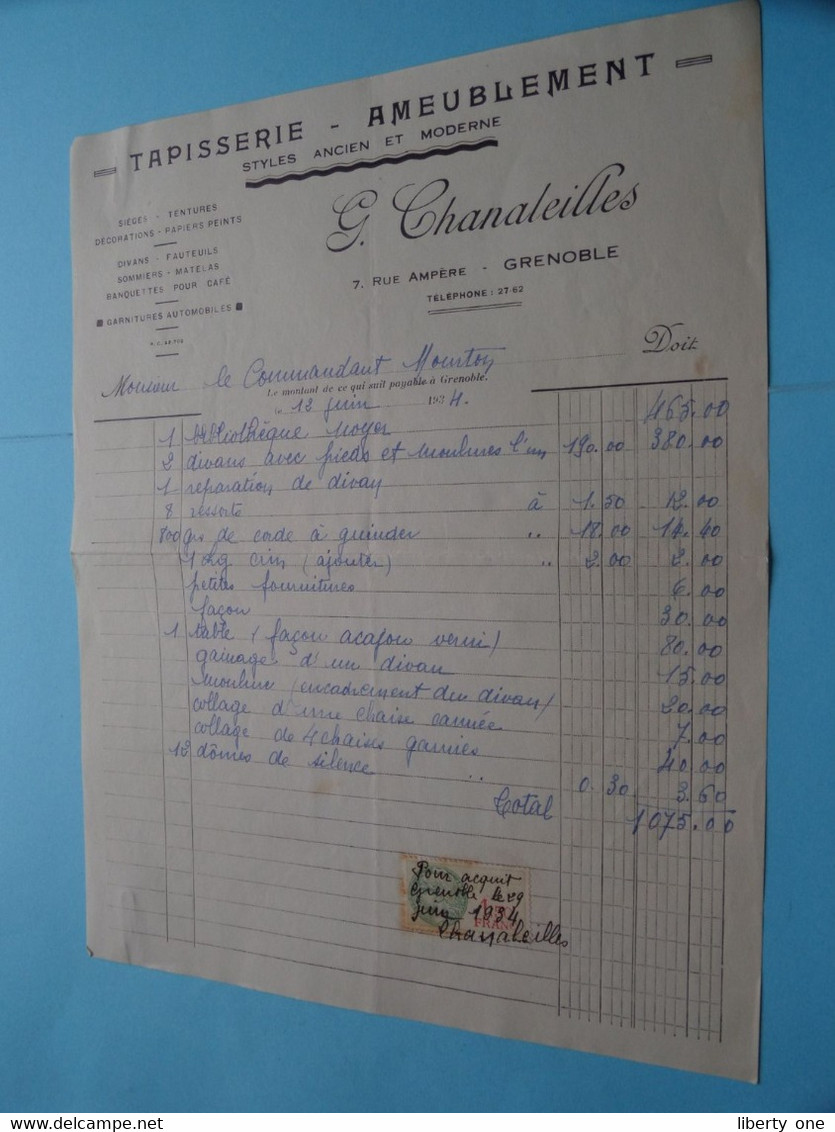 TAPISSERIE - AMEUBLEMENT
STYLES ANCIEN ET MODERNE
SIÈGES - TENTURES
DÉCORATIONS - PAPIERS PEINTS
DIVANS - FAUTEUILS
SOMMIERS - MATELAS
BANQUETTES POUR CAFÉ
GARNITURES AUTOMOBILES
G. Chanaleilles
7. RUE AMPÈRE - GRENOBLE
TÉLÉPHONE : 27-62
Doit
Monsieur le Commandant
Le montant de ce qui suit payable à Grenoble.
le 12 juin 1934.
1 bibliothèque noyer 465.00
2 divans avec pieds et moulures l'un 190.00 380.00
1 reparation de divan
8 ressorts à 1.50 12.00
800 grs de corde à guinder .. 18.00 14.40
1 kg crin (ajouter) .. 2.00 2.00
petites fournitures 6.00
façon 30.00
1 table (façon acajou verni) 80.00
gainage d'un divan 15.00
moulure (encadrement du divan) 20.00
collage d'une chaise cannée 7.00
collage de 4 chaises garnies 40.00
12 dômes de silence .. 0.30 3.60
Total 1075.00
Pour acquit
Grenoble le 29
juin 1934
FRANC
Chanaleilles
liberty one